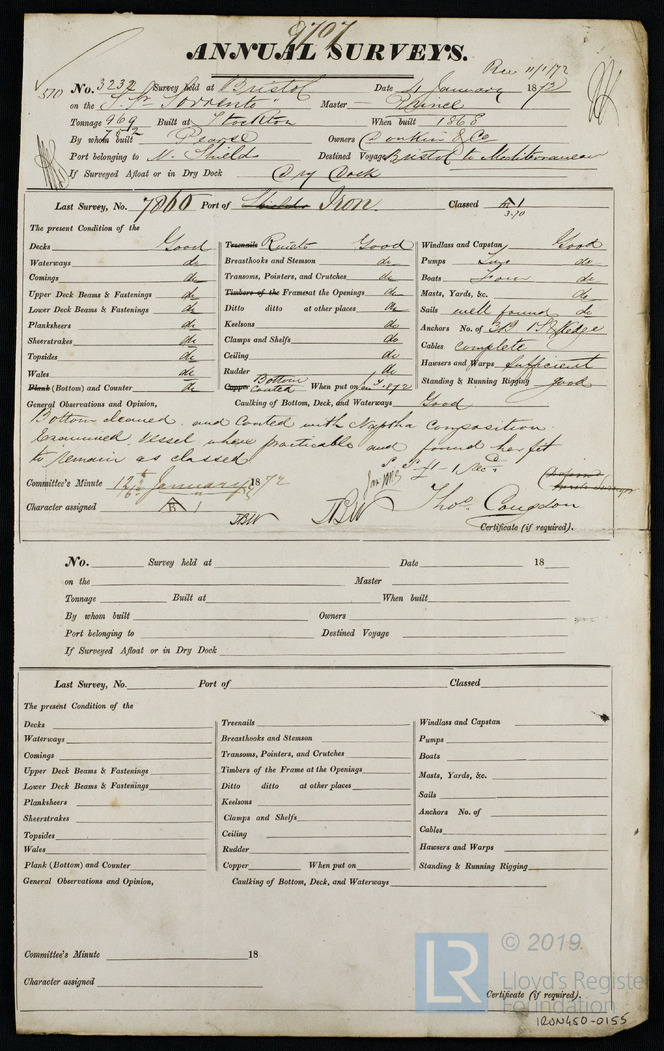 9707
ANNUAL SURVEYS.
Rec 11/1/72
510 No. 3232 Survey held at Bristol Date 4 January 1872
on the S. Sr "Sorrento" Master — Prince
Tonnage 969 Built at Stockton When built 1868
By whom built Pearse Owners Donkin & Co
Port belonging to N. Shields Destined Voyage Bristol to Mediterranean
If Surveyed Afloat or in Dry Dock Dry Dock
Last Survey, No. 7860 Port of Shields Iron. Classed A 1
3.70
The present Condition of the
Decks Good
Waterways do
Comings do
Upper Deck Beams & Fastenings do
Lower Deck Beams & Fastenings do
Planksheers do
Sheerstrakes do
Topsides do
Wales do
Plank (Bottom) and Counter do
Treenails Rivets Good
Breasthooks and Stemson do
Transoms, Pointers, and Crutches do
Timbers of the Frames at the Openings do
Ditto ditto at other places do
Keelsons do
Clamps and Shelfs do
Ceiling do
Rudder do
Copper Bottom Coated When put on in 1.872
Windlass and Capstan Good
Pumps do
Boats Four do
Masts, Yards, &c. do
Sails well found do
Anchors No. of 3B 1S & Kedge
Cables complete
Hawsers and Warps sufficient
Standing & Running Rigging good
General Observations and Opinion, Caulking of Bottom, Deck, and Waterways Good
Bottom cleaned and Coated with Naptha composition
Examined vessel where practicable and found her fit
to remain as classed
Committee's Minute 12th January 1872
Character assigned A 1
B
JBW
JBW
Thos. Congdon
Certificate (if required).
No. Survey held at Date 18
on the Master
Tonnage Built at When built
By whom built Owners
Port belonging to Destined Voyage
If Surveyed Afloat or in Dry Dock
Last Survey, No. Port of Classed
The present Condition of the
Decks
Waterways
Comings
Upper Deck Beams & Fastenings
Lower Deck Beams & Fastenings
Planksheers
Sheerstrakes
Topsides
Wales
Plank (Bottom) and Counter
Treenails
Breasthooks and Stemson
Transoms, Pointers, and Crutches
Timbers of the Frame at the Openings
Ditto ditto at other places
Keelsons
Clamps and Shelfs
Ceiling
Rudder
Copper When put on
Windlass and Capstan
Pumps
Boats
Masts, Yards, &c.
Sails
Anchors No. of
Cables
Hawsers and Warps
Standing & Running Rigging
General Observations and Opinion, Caulking of Bottom, Deck, and Waterways
Committee's Minute 18
Character assigned
Certificate (if required).
LR © 2019
Lloyd's Register
Foundation
IRON450-0155